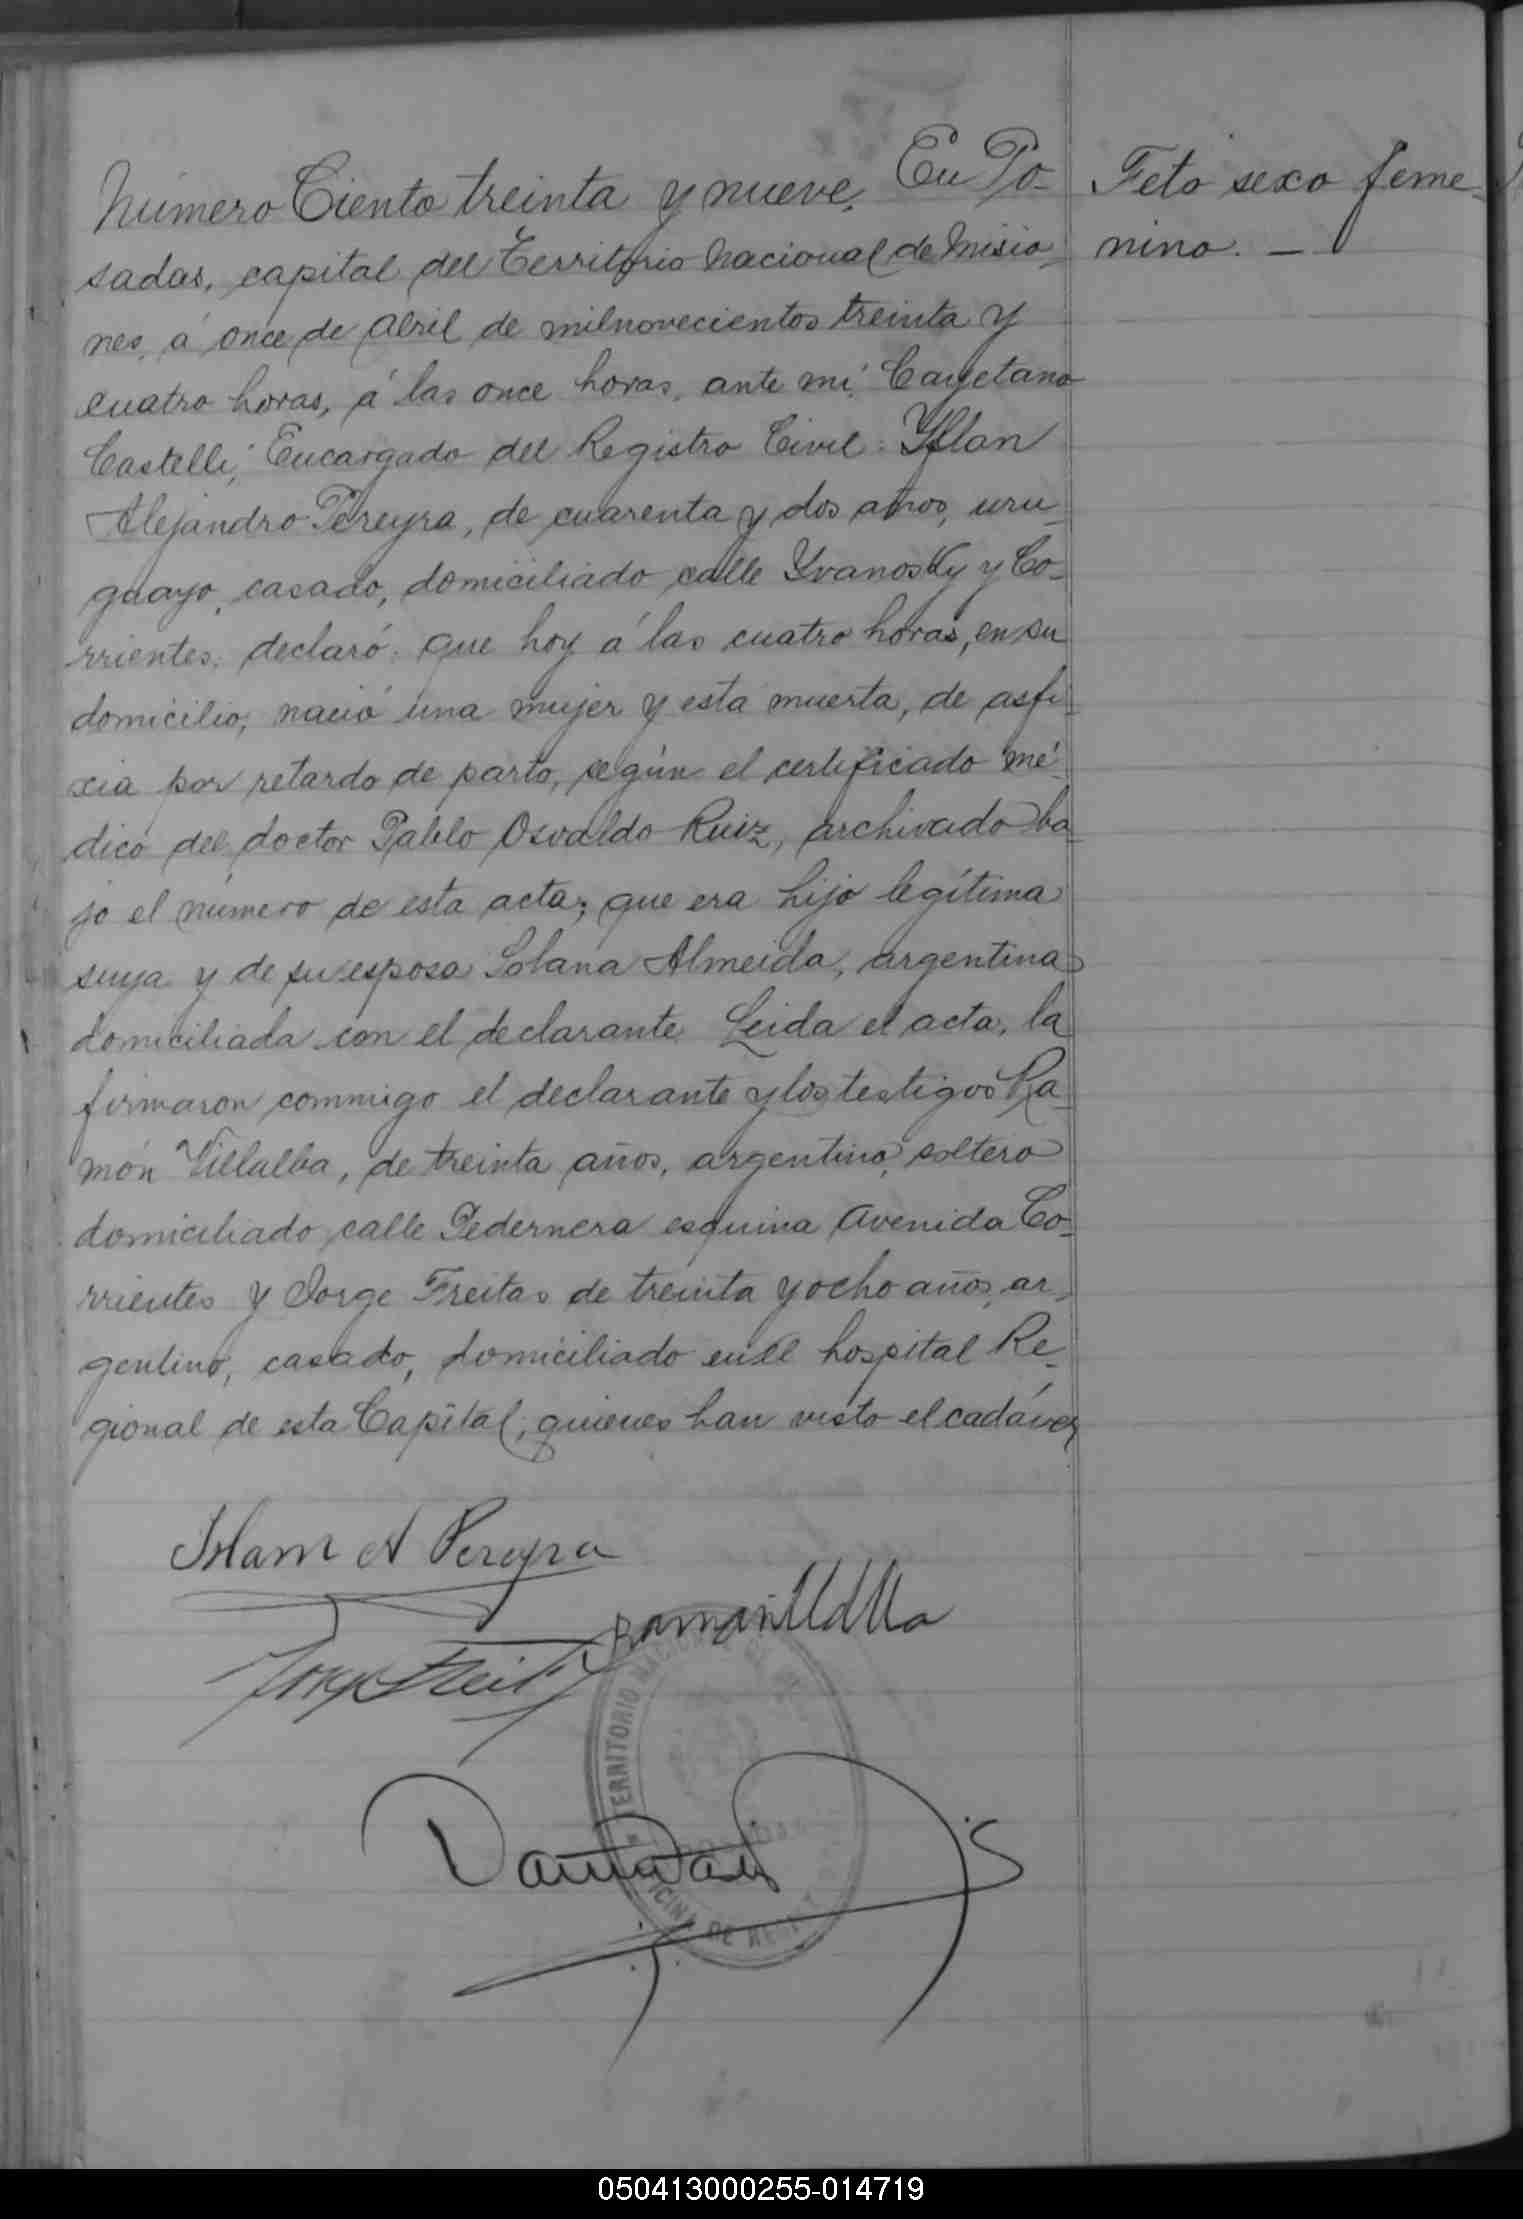 Número Ciento treinta y nueve. En Po-
sadas, capital del Territorio Nacional de Misio-
nes, á once de Abril de milnovecientos treinta y
cuatro horas, á las once horas, ante mí, Cayetano
Castelli, Encargado del Registro Civil: Yslan
Alejandro Pereyra, de cuarenta y dos años, uru-
guayo, casado, domiciliado calle Yvanosky y Co-
rrientes, declaró: que hoy á las cuatro horas, en su
domicilio, nació una mujer y esta muerta, de asfi-
xia por retardo de parto, según el certificado mé-
dico del doctor Pablo Osvaldo Ruiz, archivado ba-
jo el número de esta acta; que era hijo legítima
suya y de su esposa Solana Almeida, argentina
domiciliada con el declarante. Leida el acta, la
firmaron conmigo el declarante y los testigos Ra-
món Villalba, de treinta años, argentino, soltero
domiciliado calle Pedernera esquina Avenida Co-
rrientes y Jorge Freitas de treinta y ocho años, ar-
gentino, casado, domiciliado en el hospital Re-
gional de esta Capital, quienes han visto el cadáver
Feto sexo feme-
nino. —
Islam A Pereyra
Ramon Villalba
Jorge Freitas
TERRITORIO NACIONAL DE
OFICINA DE
050413000255-014719